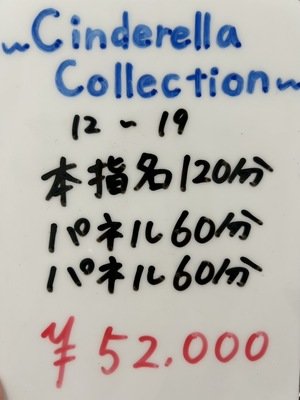 ~Cinderella
Collection~
12~19
本指名120分
パネル60分
パネル60分
¥52.000